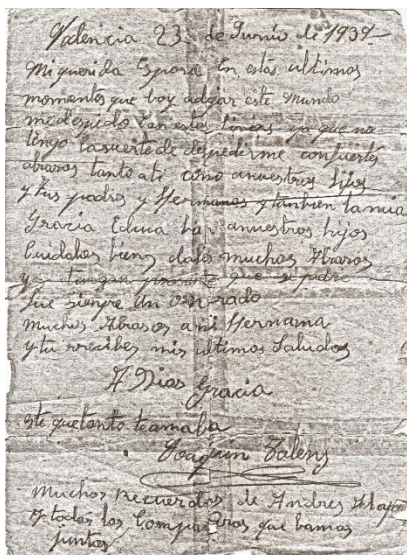 Valencia 23 de Junio de 1939
Mi querida Esposa En estos ultimos
momentos que boy adejar este Mundo
medespido con estas linias ya que no
tengo lasuerte de despederme confuertes
abrasos tanto ati como anuestros hijos
y tus padres y Hermanos y tanbien lamia
Gracia Educa bas anuestros hijos
Cuidalos bien, dales muchos Abrasos
y que tengan presente que su padre
fue sienpre un onrado
muchos Abrasos ami Hermana
y tu recibes mis ultimos Saludos
A Dios Gracia
este quetanto teamaba
Joaquin Talens
Muchos Recuerdos de Andres
y todos los Compañeros que bamos
juntos